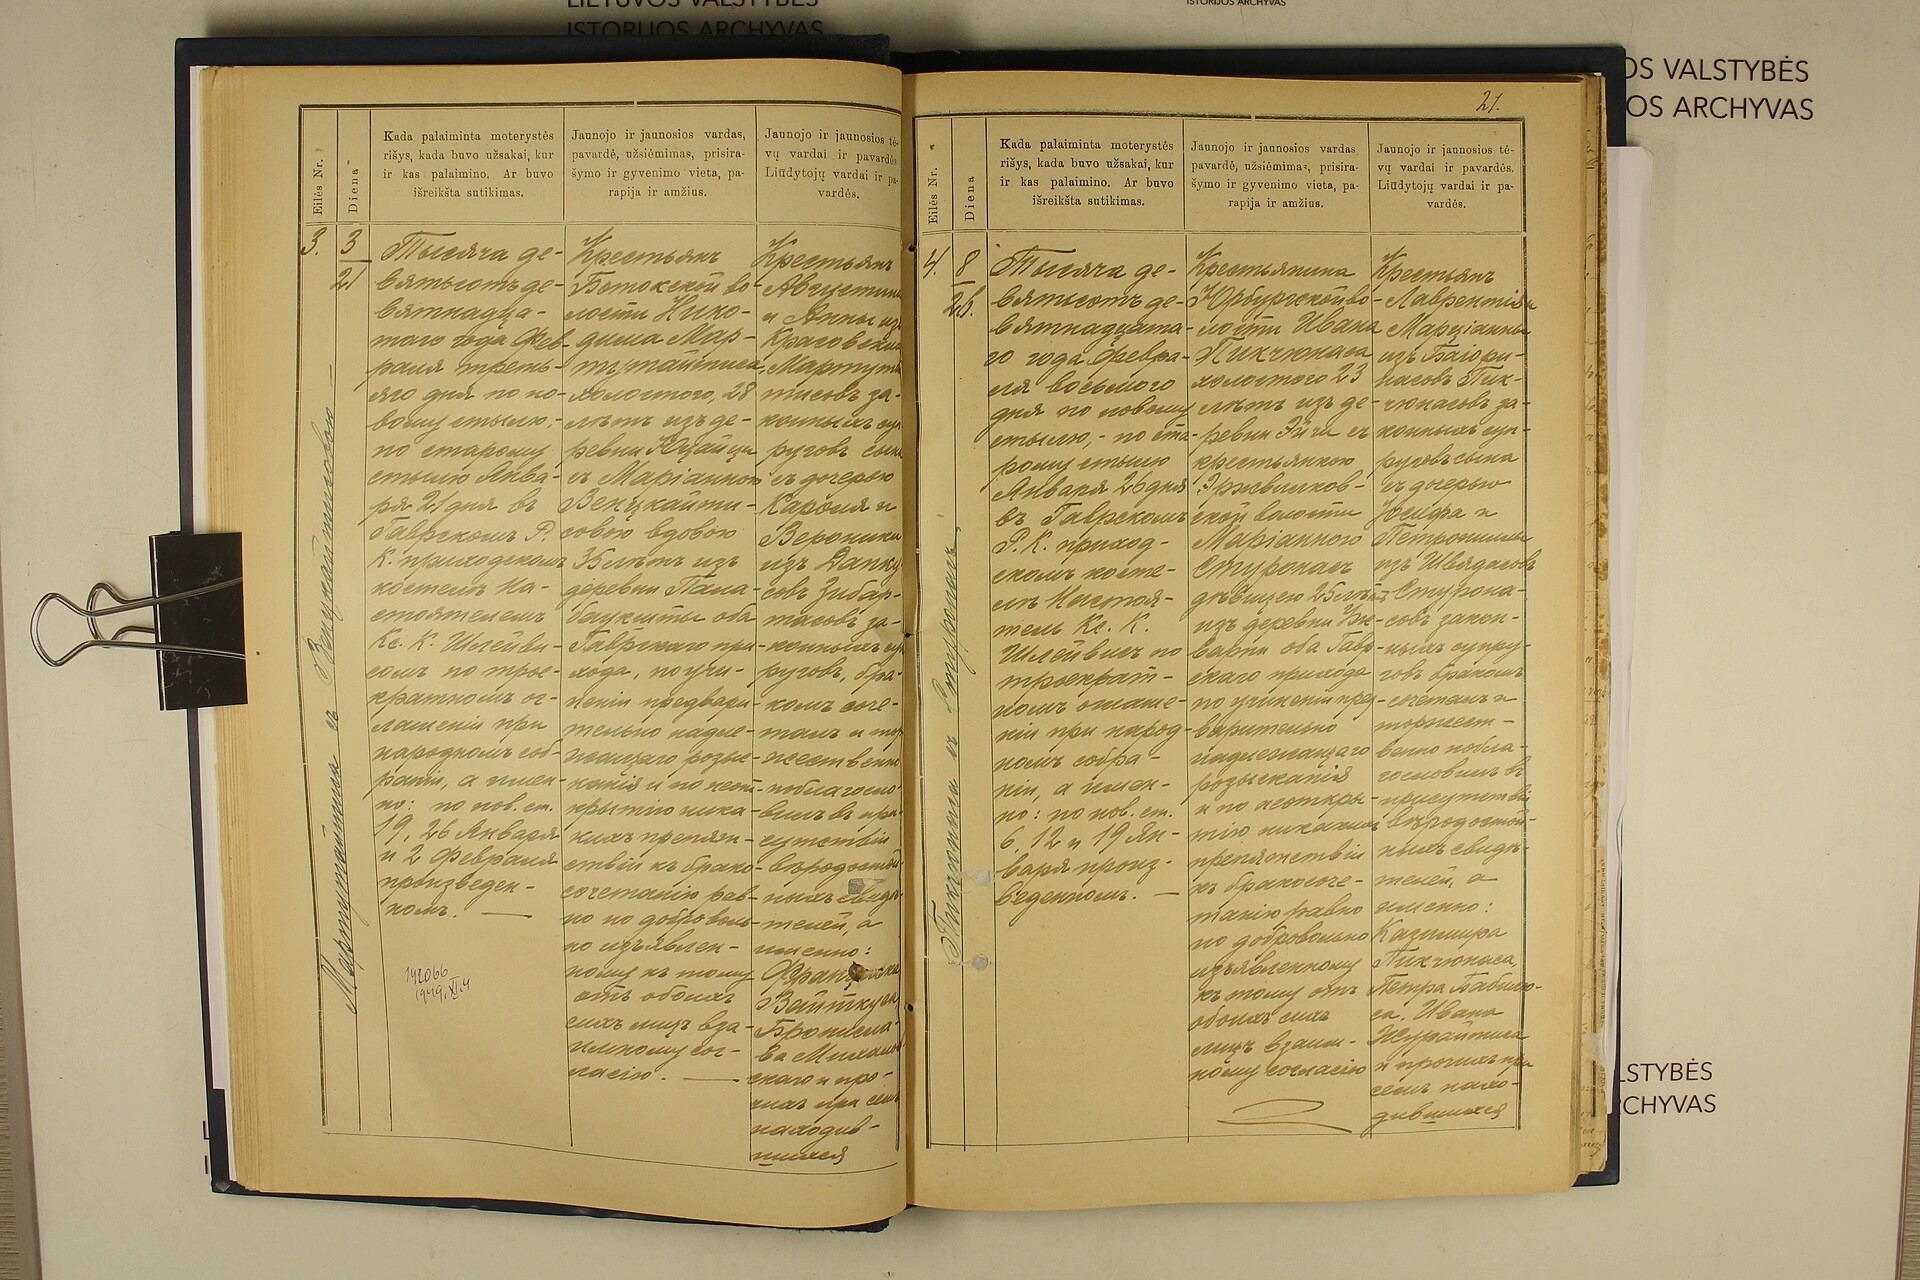 LIETUVOS VALSTYBĖS
ISTORIJOS ARCHYVAS
ISTORIJOS ARCHYVAS
OS VALSTYBĖS
OS ARCHYVAS
Eilės Nr.
Diena
Kada palaiminta moterystės
rišys, kada buvo užsakai, kur
ir kas palaimino. Ar buvo
išreikšta sutikimas.
Jaunojo ir jaunosios vardas,
pavardė, užsiėmimas, prisira-
šymo ir gyvenimo vieta, pa-
rapija ir amžius.
Jaunojo ir jaunosios tė-
vų vardai ir pavardės
Liūdytojų vardai ir pa-
vardės.
3.
3
21
Тысяча де-
вятьсотъ де-
вятнадца-
таго года Фев
раля треть-
яго дня по но-
вому стилю,-
по старому
стилю Янва-
ря 21 дня въ
Гаврскомъ Р.
К. приходскомъ
костелѣ На-
стоятелемъ
Кс. К. Шлейви-
сомъ по трое-
кратномъ ог-
лашеніи при
народномъ соб-
раніи, а имен-
но: по нов. ст.
19, 26 Января
и 2 Февраля
произведен-
номъ.
142066
1949.XI.4
Крестьянъ
Ботокской во-
лости Нико-
дима Мар-
холостого, 28
лѣтъ изъ де-
ревни
съ Маріанною
Венцкайти-
совою вдовою
лѣтъ изъ
деревни Пала-
оба
Гаврскаго при-
хода, по учи-
неніи предвари-
тельно надле-
жащаго розыс-
канія и по неот-
крытію ника-
кихъ препят-
ствій къ брако-
сочетанію рав-
но по доброволь-
но изъявлен-
ному къ тому
отъ обоихъ
сихъ лицъ вза-
имному сог-
ласію.
Крестьянъ
Августина
и Анны изъ
тисовъ за-
конныхъ суп
руговъ сына
съ дочерью
Кароля и
Вероники
изъ
за-
конныхъ суп
руговъ, бра-
комъ соче-
талъ и тор
жественно
поблагосло-
вилъ въ при-
сутствіи
вѣродостой-
ныхъ свидѣ-
телей, а
именно:
Бронисла-
ва
скаго и про-
чихъ при семъ
находив-
шихся
21.
Eilės Nr.
Diena
Kada palaiminta moterystės
rišys, kada buvo užsakai, kur
ir kas palaimino. Ar buvo
išreikšta sutikimas.
Jaunojo ir jaunosios vardas
pavardė, užsiėmimas, prisira-
šymo ir gyvenimo vieta, pa-
rapija ir amžius.
Jaunojo ir jaunosios tė-
vų vardai ir pavardės.
Liūdytojų vardai ir pa-
vardės.
4.
8
26.
Тысяча де-
вятьсотъ де-
вятнадцата-
го года Февра-
ля восьмого
дня по новому
стилю,- по ста-
рому стилю
Января 26 дня
въ Гаврскомъ
Р. К. приход-
скомъ косте-
лѣ Настоя-
тель Кс. К.
Шлейвисъ по
троекрат-
номъ оглаше-
ніи при народ-
номъ собра-
ніи, а имен-
но: по нов. ст.
6, 12 и 19 Ян-
варя произ-
веденномъ.
Крестьянина
Юрбургской во-
лости Ивана
Пикчюнаса
холостого 23
лѣтъ изъ де-
ревни съ
крестьянкою
Эржвилков-
ской волости
Маріанною
дѣвицею 25 лѣтъ
изъ деревни
оба Гавр-
скаго прихода
по учиненіи пред-
варительно
надлежащаго
розысканія
и по неоткры-
тію никакихъ
препятствій
къ бракосоче-
танію равно
по добровольно
изъявленному
къ тому отъ
обоихъ сихъ
лицъ взаим-
ному согласію
Крестьянъ
Лаврентія и
Марціанны
изъ
Пик-
чюнасовъ за-
конныхъ суп-
руговъ сына
съ дочерью
Іосифа и
Петронели
изъ
совъ закон-
ныхъ супру-
говъ бракомъ
сочеталъ и
торжест-
венно побла-
гословилъ въ
присутствіи
вѣродостой-
ныхъ свидѣ-
телей, а
именно:
Казимира
Пикчюнаса,
Петра
са, Ивана
и прочихъ при
семъ нахо-
дившихся
LSTYBĖS
RCHYVAS